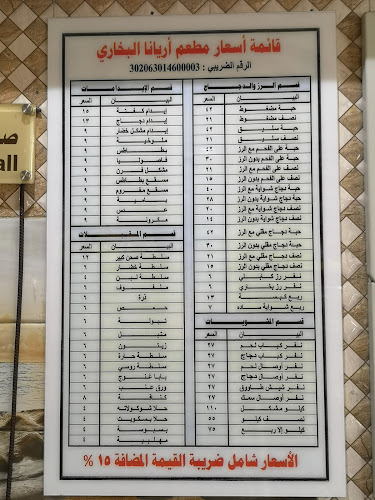 قائمة أسعار مطعم أريانا البخاري
الرقم الضريبي : 302063014600003
قسم الرز والدجاج
البيـــــان السعر
حبة مضغوط ٤٢
نصف مضغوط ٢١
حبة سليق ٤٢
نصف سليق ٢١
حبة على الفحم مع الرز ٤٢
حبة على الفحم بدون الرز ٣٠
نصف على الفحم مع الرز ٢١
نصف على الفحم بدون الرز ١٥
حبة دجاج شواية مع الرز ٤٠
حبة دجاج شواية بدون الرز ٢٨
نصف دجاج شواية مع الرز ٢٠
نصف دجاج شواية بدون الرز ١٤
حبة دجاج مقلي مع الرز ٤٢
حبة دجاج مقلي بدون الرز ٣٠
نصف دجاج مقلي مع الرز ٢١
نصف دجاج مقلي بدون الرز ١٥
نفر رز كابلي
نفر رز بخاري
ربع كبسة ١٣
ربع شواية سادة ٧
قسم المشويات
البيـــــان السعر
نفر كباب لحم ٢٧
نفر كباب دجاج ٢٧
نفر أوصال لحم ٢٧
نفر أوصال دجاج ٢٧
نفر شيش طاووق ٢٧
نفر أوصال سمك ٢٧
كيلو مشكل ١١٠
نصف كيلو ٥٥
كيلو إلا ربع ٧٥
قسم الإيدامات
البيـــــان السعر
إيدام كفتة ١٥
إيدام دجاج ١٣
إيدام مشكل خضار ٩
ملوخية ٩
بطاطس ٩
فاصوليا ٩
مشكل فرن ٩
مسقع بطاطس ٩
مسقع مفروم ٩
بامية ٩
عدس ٩
مكرونة ٩
قسم المقبلات
البيـــــان السعر
سلطة صحن كبير ١٢
سلطة خضار ٦
سلطة لبن ٦
ملفوف ٦
ذرة ٦
حمص ٦
تبولة ٦
متبل ٦
زيتون ٦
سلطة حارة ٦
سلطة روسي ٦
بابا غنوج ٦
ورق عنب
كنافة ٨
حلا شوكولاته ٤
حلا بسكويت ٤
بسبوسة ٤
مهلبية ٤
الأسعار شامل ضريبة القيمة المضافة ١٥ %
all